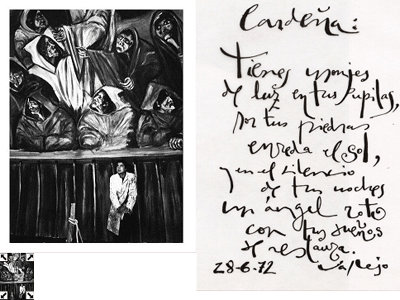 Cardeña:
Tienes monjes
de luz en tus pupilas,
por tus piedras
enreda el sol,
y en el silencio
de tus noches
un ángel roto
con tus sueños
se restaura.
28-6-72 Vallejo